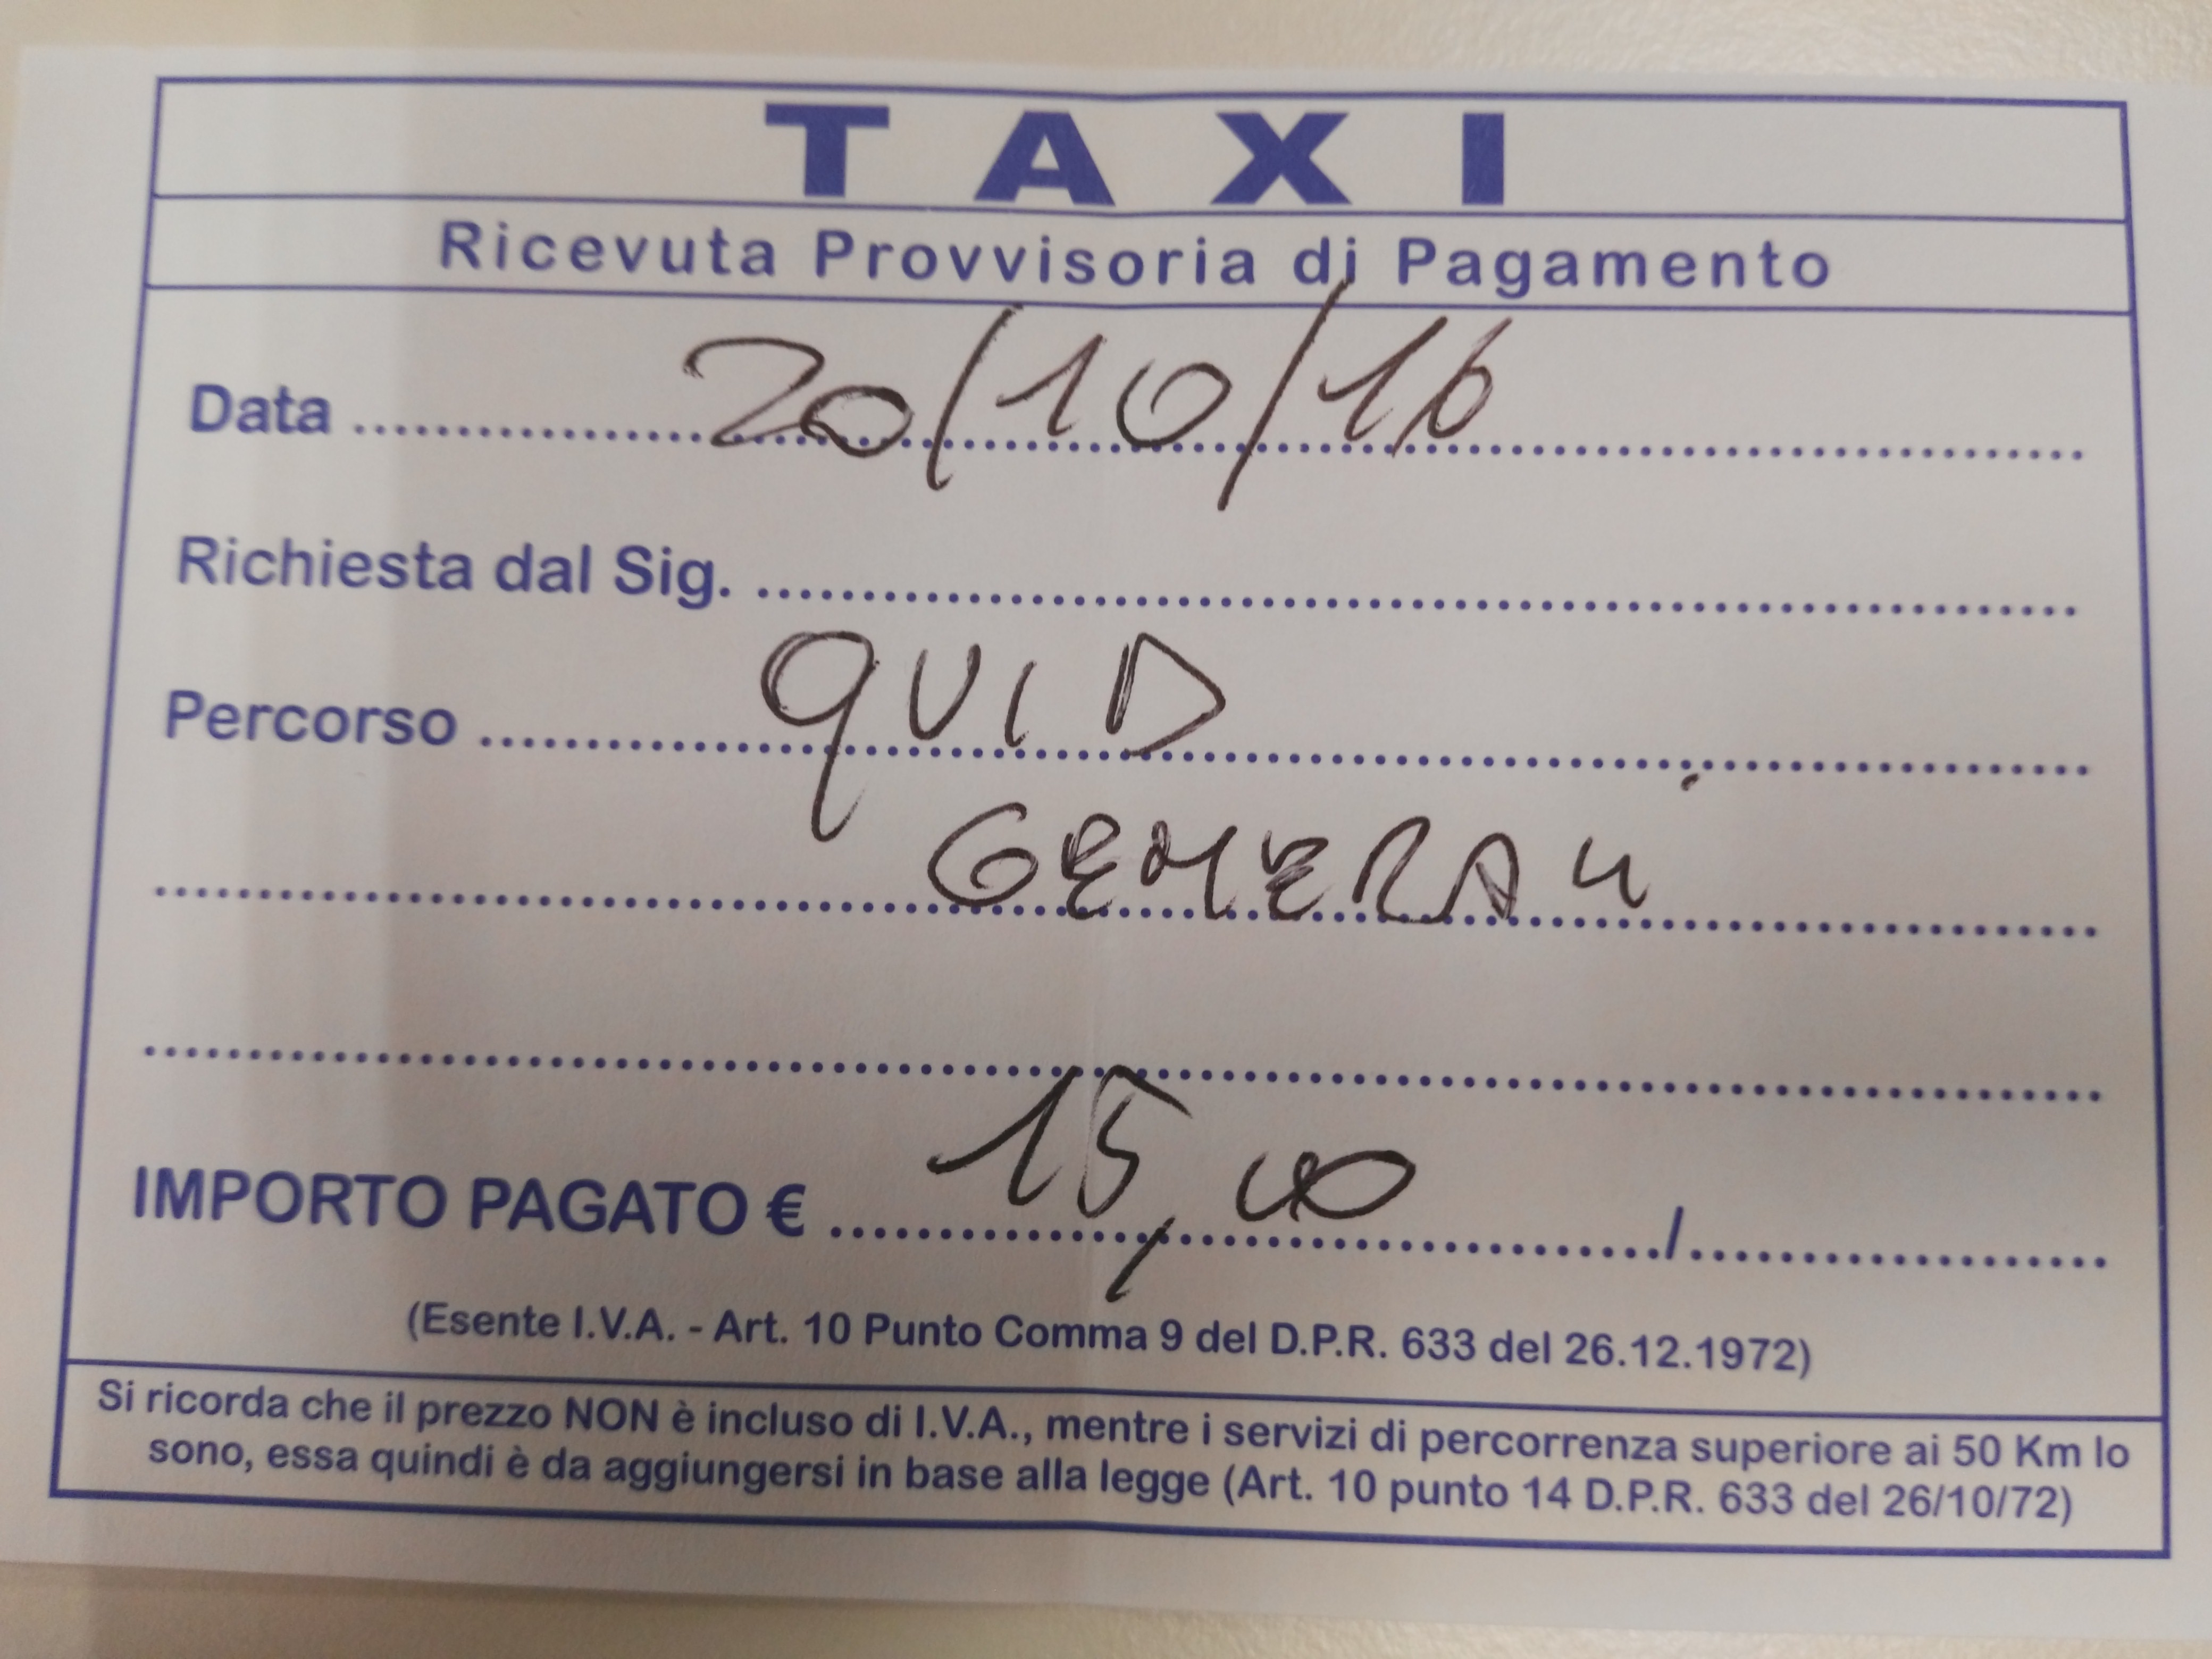 TAXI
Ricevuta Provvisoria di Pagamento
Data 20/10/16
Richiesta dal Sig.
Percorso QUID
GENERALI
IMPORTO PAGATO € 15,00 /
(Esente I.V.A. - Art. 10 Punto Comma 9 del D.P.R. 633 del 26.12.1972)
Si ricorda che il prezzo NON è incluso di I.V.A., mentre i servizi di percorrenza superiore ai 50 Km lo
sono, essa quindi è da aggiungersi in base alla legge (Art. 10 punto 14 D.P.R. 633 del 26/10/72)